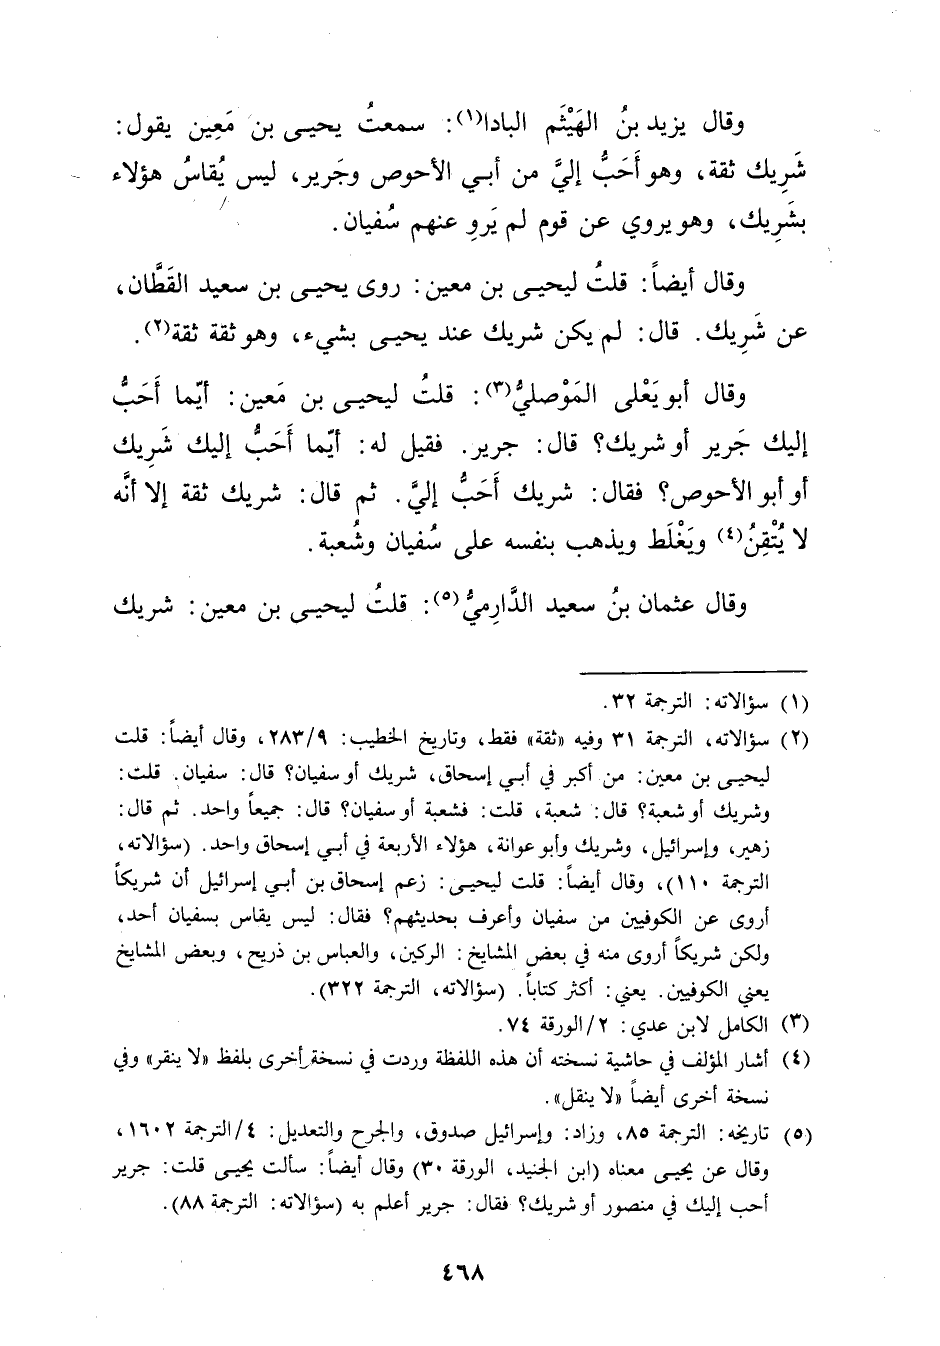 وقال يزيد بنُ الهَيْثَم البادا(١): سمعتُ يحيى بن مَعِين يقول:
شَرِيك ثقة، وهو أَحَبُّ إليَّ من أبي الأحوص وجَرير، ليس يُقاسُ هؤلاء
بشَرِيك، وهو يروي عن قوم لم يَروِ عنهم سُفيان.
وقال أيضاً: قلتُ ليحيى بن معين: روى يحيى بن سعيد القَطَّان،
عن شَرِيك. قال: لم يكن شريك عند يحيى بشيء، وهو ثقة ثقة(٢).
وقال أبو يَعْلى المَوْصليُّ(٣): قلتُ ليحيى بن مَعين: أيّما أَحَبُّ
إليك جَرير أو شريك؟ قال: جرير. فقيل له: أيّما أَحَبُّ إليك شَرِيك
أو أبو الأحوص؟ فقال: شريك أَحَبُّ إليَّ. ثم قال: شريك ثقة إلا أنَّه
لا يُتْقِنُ(٤) ويَغْلَط ويذهب بنفسه على سُفيان وشُعبة.
وقال عثمان بنُ سعيد الدَّارِميُّ(٥): قلتُ ليحيى بن معين: شريك
(١) سؤالاته: الترجمة ٣٢.
(٢) سؤالاته، الترجمة ٣١ وفيه «ثقة» فقط، وتاريخ الخطيب: ٢٨٣/٩، وقال أيضاً: قلت
ليحيى بن معين: من أكبر في أبي إسحاق، شريك أو سفيان؟ قال: سفيان. قلت:
وشريك أو شعبة؟ قال: شعبة، قلت: فشعبة أو سفيان؟ قال: جميعاً واحد. ثم قال:
زهير، وإسرائيل، وشريك وأبو عوانة، هؤلاء الأربعة في أبي إسحاق واحد. (سؤالاته،
الترجمة ١١٠)، وقال أيضاً: قلت ليحيى: زعم إسحاق بن أبي إسرائيل أن شريكاً
أروى عن الكوفيين من سفيان وأعرف بحديثهم؟ فقال: ليس يقاس بسفيان أحد،
ولكن شريكاً أروى منه في بعض المشايخ: الركين، والعباس بن ذريح، وبعض المشايخ
يعني الكوفيين. يعني: أكثر كتاباً. (سؤالاته، الترجمة ٣٢٢).
(٣) الكامل لابن عدي: ٢/الورقة ٧٤.
(٤) أشار المؤلف في حاشية نسخته أن هذه اللفظة وردت في نسخة أخرى بلفظ «لا ينقر» وفي
نسخة أخرى أيضاً «لا ينقل».
(٥) تاريخه: الترجمة ٨٥، وزاد: وإسرائيل صدوق، والجرح والتعديل: ٤/الترجمة ١٦٠٢،
وقال عن يحيى معناه (ابن الجنيد، الورقة ٣٠) وقال أيضاً: سألت يحيى قلت: جرير
أحب إليك في منصور أو شريك؟ فقال: جرير أعلم به (سؤالاته: الترجمة ٨٨).
٤٦٨